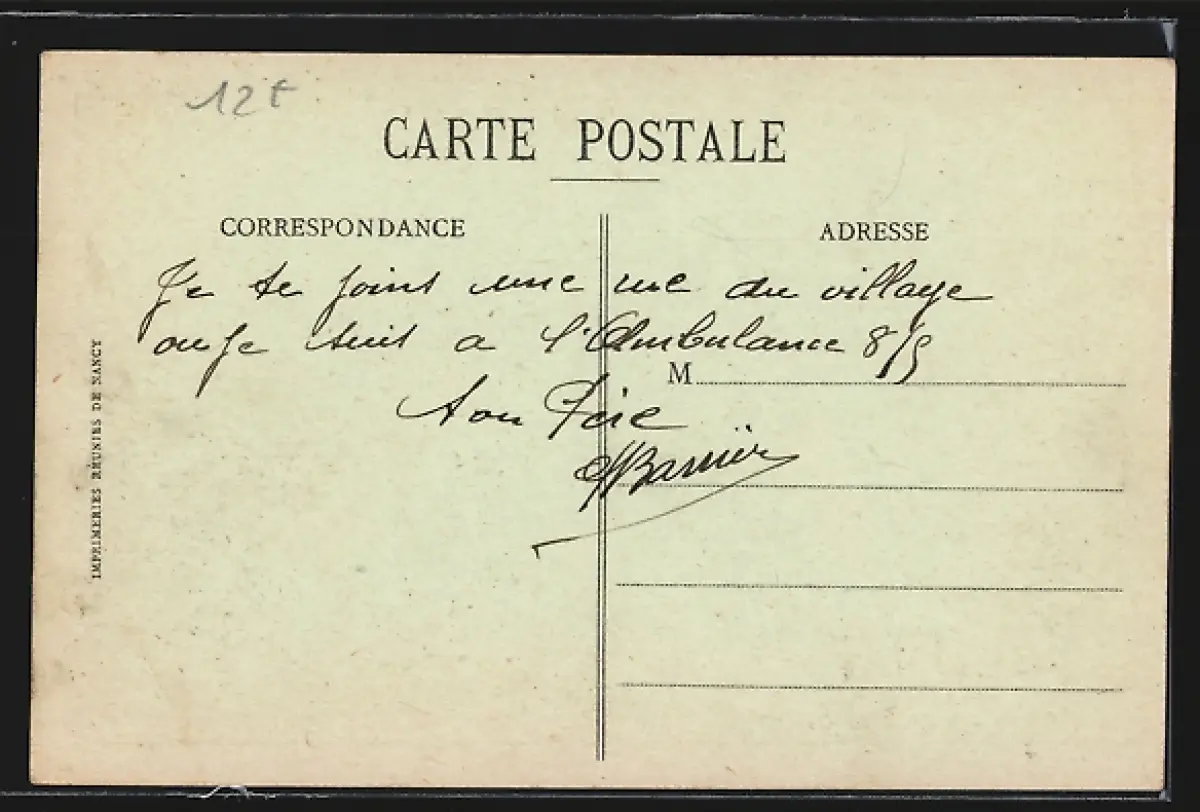 12t
CARTE POSTALE
CORRESPONDANCE
ADRESSE
Je te joins une vue du village
ou je suis à l'Ambulance 8/5
Ton Père
M
IMPRIMERIES RÉUNIES DE NANCY